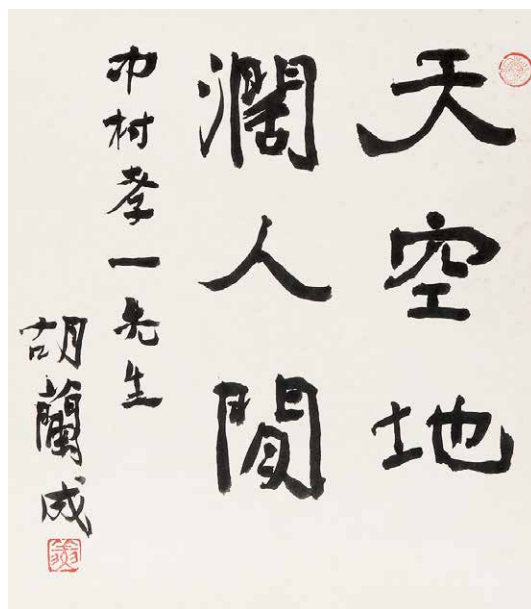 天空地
濶人間
市村孝一先生
胡蘭成